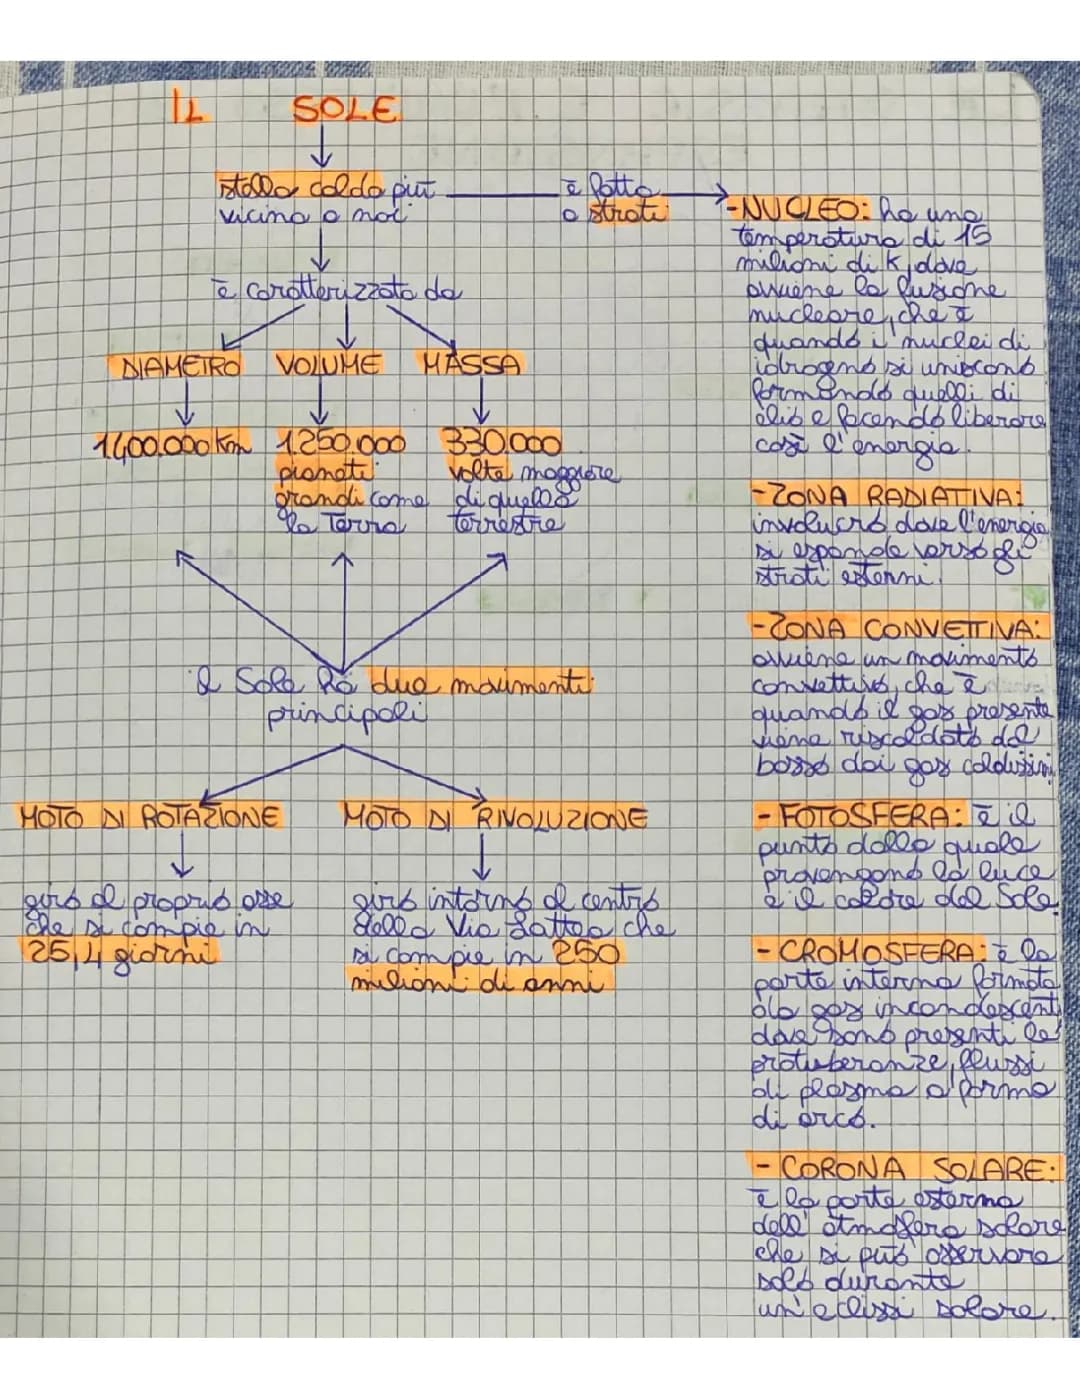 IL SOLE
stella calda più
vicina a noi
è fatto
a strati
è caratterizzato da
DIAMETRO VOLUME MASSA
1400.000 km
1.250.000
pianeti
grandi come
la Terra
330.000
volte maggiore
di quella
terrestre
il Sole ha due movimenti
principali
MOTO DI ROTAZIONE
giro al proprio asse
che si compie in
25,4 giorni
MOTO DI RIVOLUZIONE
giro intorno al centro
della Via Lattea che
si compie in 250
milioni di anni
-NUCLEO: ha una
temperatura di 15
milioni di K, dove
avviene la fusione
nucleare, che è
quando i nuclei di
idrogeno si uniscono
formando quelli di
elio e facendo liberare
così l'energia.
-ZONA RADIATIVA:
involucro dove l'energia
si espande verso gli
strati esterni.
-ZONA CONVETTIVA:
avviene un movimento
convettivo, che è
quando il gas presente
viene riscaldato dal
basso dai gas caldissimi
- FOTOSFERA: è il
punto dalla quale
provengono la luce
e il calore del Sole.
- CROMOSFERA: è la
parte interna formata
da gas incandescenti
dove sono presenti le
protuberanze, flussi
di plasma a forma
di arco.
- CORONA SOLARE:
è la parte esterna
dell'atmosfera solare
che si può osservare
solo durante
un'eclissi solare.